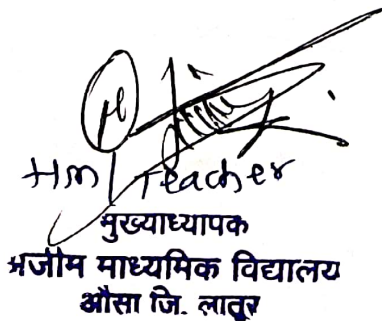 HM Teacher
मुख्याध्यापक
अजीम माध्यमिक विद्यालय
औसा जि. लातूर